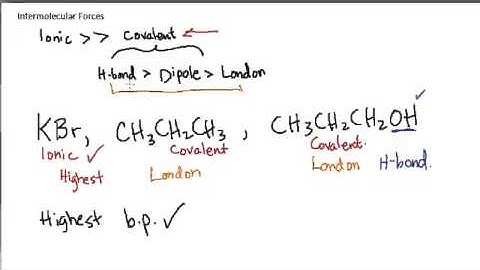 Intermolecular Forces
Ionic >> Covalent
H-bond > Dipole > London
KBr, CH₃CH₂CH₃, CH₃CH₂CH₂OH
Ionic ✓ Covalent Covalent.
Highest London London H-bond.
Highest b.p. ✓